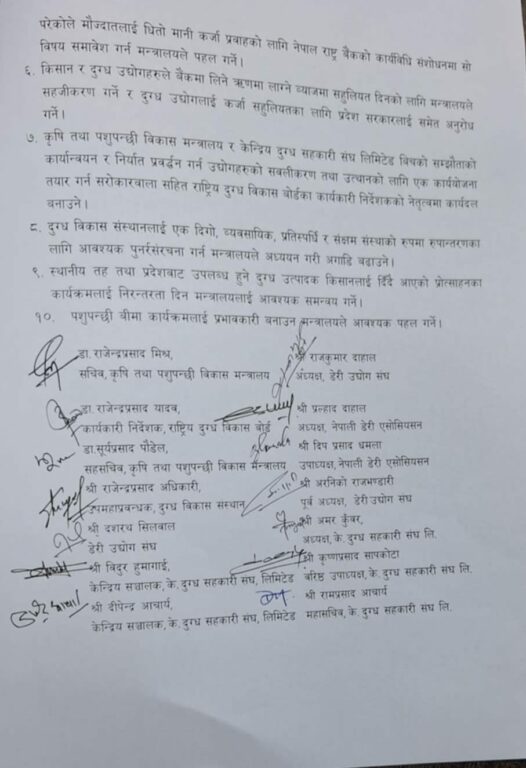 परेकोले मौज्दातलाई धितो मानी कर्जा प्रवाहको लागि नेपाल राष्ट्र बैंकको कार्यविधि संशोधनमा सो
विषय समावेश गर्न मन्त्रालयले पहल गर्ने।
६. किसान र दुग्ध उद्योगहरुले बैंकमा लिने ऋणमा लाग्ने ब्याजमा सहुलियत दिनको लागि मन्त्रालयले
सहजीकरण गर्ने र दुग्ध उद्योगलाई कर्जा सहुलियतका लागि प्रदेश सरकारलाई समेत अनुरोध
गर्ने।
७. कृषि तथा पशुपन्छी विकास मन्त्रालय र केन्द्रिय दुग्ध सहकारी संघ लिमिटेड बिचको सम्झौताको
कार्यान्वयन र निर्यात प्रवर्द्धन गर्न उद्योगहरुको सबलीकरण तथा उत्थानको लागि एक कार्ययोजना
तयार गर्न सरोकारवाला सहित राष्ट्रिय दुग्ध विकास बोर्डका कार्यकारी निर्देशकको नेतृत्वमा कार्यदल
बनाउने।
८. दुग्ध विकास संस्थानलाई एक दिगो, व्यवसायिक, प्रतिस्पर्धि र सक्षम संस्थाको रुपमा रुपान्तरणका
लागि आवश्यक पुनर्रसंरचना गर्न मन्त्रालयले अध्ययन गरी अगाडि बढाउने।
९. स्थानीय तह तथा प्रदेशबाट उपलब्ध हुने दुग्ध उत्पादक किसानलाई दिँदै आएको प्रोत्साहनका
कार्यक्रमलाई निरन्तरता दिन मन्त्रालयलाई आवश्यक समन्वय गर्ने।
१०. पशुपन्छी बीमा कार्यक्रमलाई प्रभावकारी बनाउन मन्त्रालयले आवश्यक पहल गर्ने।
डा. राजेन्द्रप्रसाद मिश्र, श्री राजकुमार दाहाल
सचिव, कृषि तथा पशुपन्छी विकास मन्त्रालय अध्यक्ष, डेरी उद्योग संघ
डा. राजेन्द्रप्रसाद यादव, श्री प्रल्हाद दाहाल
कार्यकारी निर्देशक, राष्ट्रिय दुग्ध विकास बोर्ड अध्यक्ष, नेपाली डेरी एसोसियसन
डा. सूर्यप्रसाद पौडेल, श्री दिप प्रसाद धमला
सहसचिव, कृषि तथा पशुपन्छी विकास मन्त्रालय उपाध्यक्ष, नेपाली डेरी एसोसियसन
श्री राजेन्द्रप्रसाद अधिकारी, श्री अरनिको राजभण्डारी
उपमहाप्रवन्धक, दुग्ध विकास संस्थान पूर्व अध्यक्ष, डेरी उद्योग संघ
श्री दशरथ सिलवाल श्री अमर कुँवर,
डेरी उद्योग संघ अध्यक्ष, के. दुग्ध सहकारी संघ लि.
श्री विदुर हुमागाई, श्री कृष्णप्रसाद सापकोटा
केन्द्रिय सञ्चालक, के. दुग्ध सहकारी संघ, लिमिटेड बरिष्ठ उपाध्यक्ष, के. दुग्ध सहकारी संघ लि.
श्री दीपेन्द्र आचार्य, श्री रामप्रसाद आचार्य
केन्द्रिय सञ्चालक, के. दुग्ध सहकारी संघ, लिमिटेड महासचिव, के. दुग्ध सहकारी संघ लि.